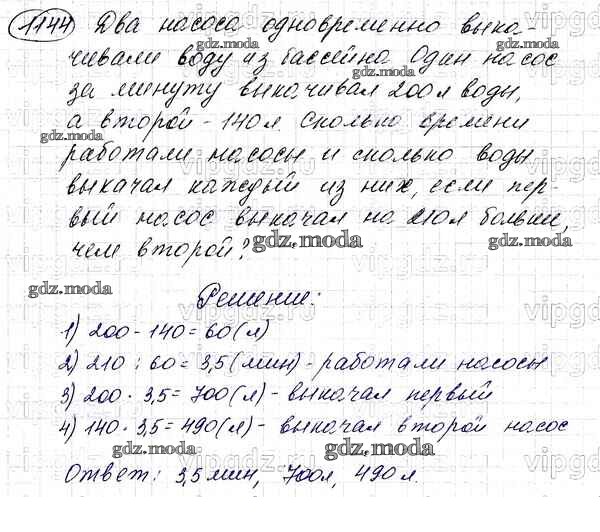 1144 Два насоса одновременно выка-
чивали воду из бассейна. Один насос
за минуту выкачивал 200л воды,
а второй - 140л. Сколько времени
работали насосы и сколько воды
выкачал каждый из них, если пер-
вый насос выкачал на 210л больше,
чем второй?
Решение:
1) 200 - 140 = 60(л)
2) 210 : 60 = 3,5(мин) - работали насосы
3) 200 · 3,5 = 700(л) - выкачал первый
4) 140 · 3,5 = 490(л) - выкачал второй насос
Ответ: 3,5 мин, 700л, 490л.
gdz.moda
vipgdz.ru